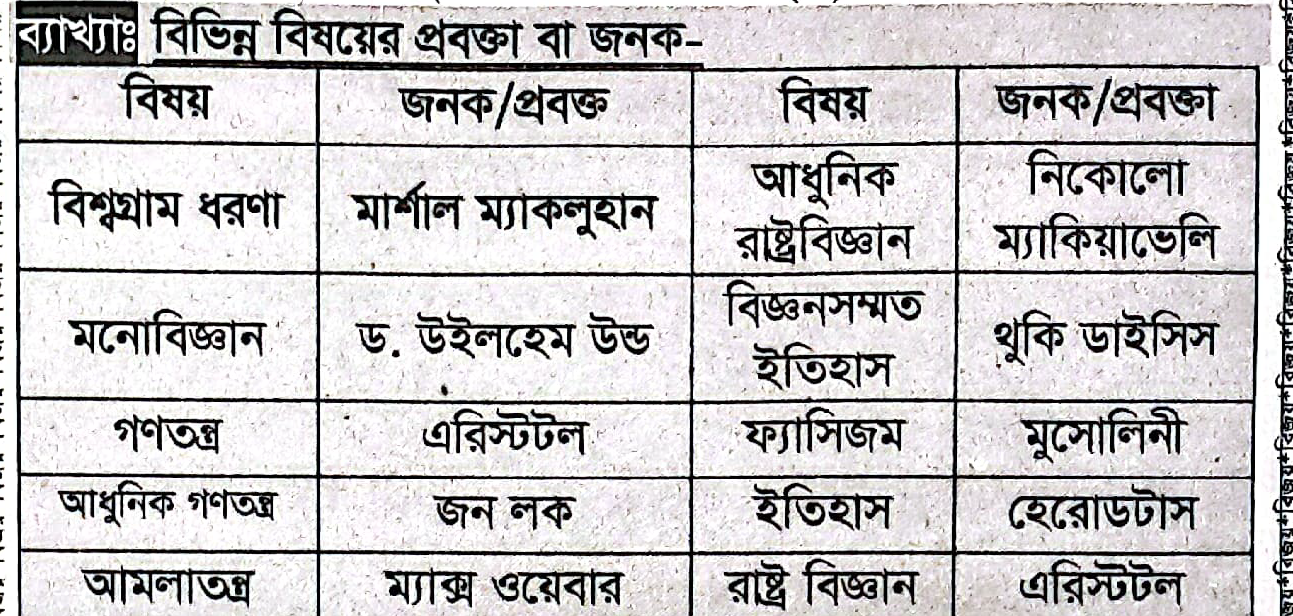 ব্যাখ্যাঃ বিভিন্ন বিষয়ের প্রবক্তা বা জনক-
বিষয় জনক/প্রবক্ত বিষয় জনক/প্রবক্তা
বিশ্বগ্রাম ধরণা মার্শাল ম্যাকলুহান আধুনিক রাষ্ট্রবিজ্ঞান নিকোলো ম্যাকিয়াভেলি
মনোবিজ্ঞান ড. উইলহেম উন্ড বিজ্ঞনসম্মত ইতিহাস থুকি ডাইসিস
গণতন্ত্র এরিস্টটল ফ্যাসিজম মুসোলিনী
আধুনিক গণতন্ত্র জন লক ইতিহাস হেরোডটাস
আমলাতন্ত্র ম্যাক্স ওয়েবার রাষ্ট্র বিজ্ঞান এরিস্টটল